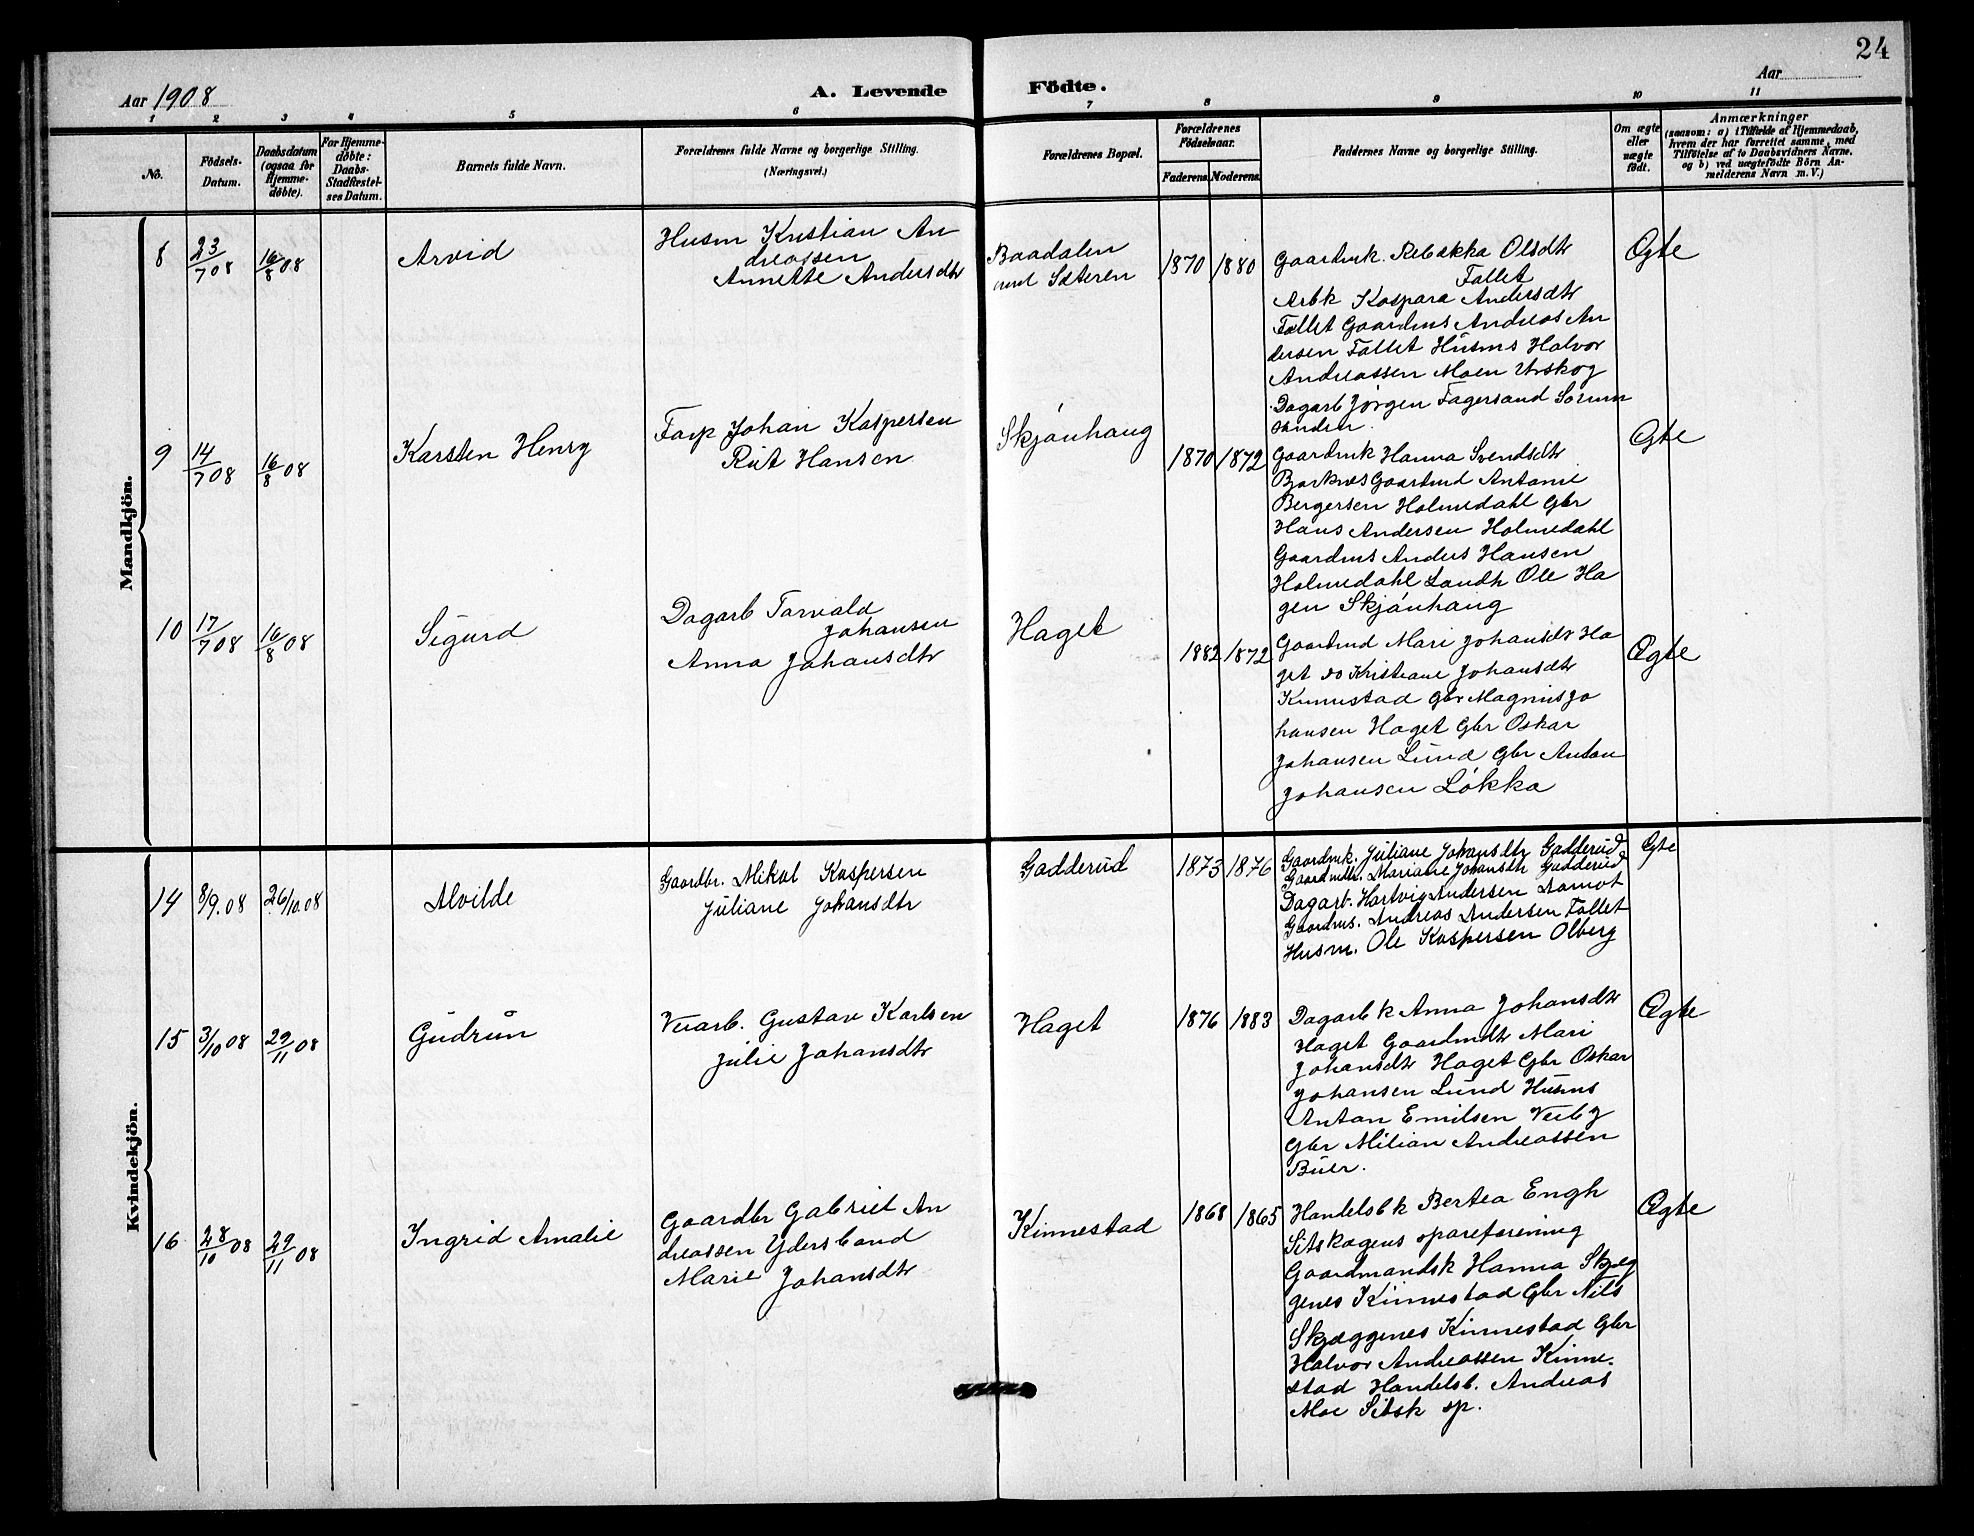 24
Aar 1908
A. Levende
Födte.
Aar
1 2 3 4 5 6 7 8 9 10 11
No.
Födsels-
Datum.
Daabsdatum
(ogsaa för
Hjemme-
döbte).
For Hjemme-
döbte:
Daabs-
Stadfæstel-
ses Datum.
Barnets fulde Navn.
Forældrenes fulde Navne og borgerlige Stilling.
(Næringsvei.)
Forældrenes Bopæl.
Forældrenes
Födselsaar.
Faderens. Moderens.
Faddernes Navne og borgerlige Stilling.
Om ægte
eller
uægte
födt.
Anmærkninger
(saasom: a) i Tilfælde af Hjemmedaab,
hvem der har forrettet samme, med
Tilföielse af to Daabsvidners Navne,
og b) ved uægtefödte Börn An-
melderens Navn m.V.)
Mandkjön.
8 23/7 08 16/8 08
Arvid
Husm Kristian An
dreassen
Annette Andersdtr
Baadalen
Sæteren
1870 1880
Gaardmk. Rebekka Olsdtr
Fallet
Arbk Kaspara Andersdtr
Fallet Gaardms Andreas An
dersen Fallet Husms Halvor
Andreassen Moen Urskog
Dagarb Jørgen Fagersand Sörum
sanden.
Ægte
9 14/7 08 16/8 08
Karsten Henry
Forp Johan Kaspersen
Rut Hansen
Skjönhaug
1870 1872
Gaardmk Hanna Svendsdtr
Bjørknes Gaardmd Antonie
Bergersen Holmedahl Gbr
Hans Andersen Holmedahl
Gaardms Anders Hansen
Holmedahl Landh Ole Ha
gen Skjönhaug
Ægte
10 17/7 08 16/8 08
Sigurd
Dagarb Torvald
Johansen
Anna Johansdtr
Haget
1882 1872
Gaardmd Mari Johansdr Ha
get do Kristiane Johansdtr
Kinnestad Gbr Magnus Jo
hansen Haget Gbr Oskar
Johansen Lund Gbr Anton
Johansen Løkka
Ægte
Kvindekjön.
14 8/9. 08 26/10. 08
Alvilde
Gaardbr. Mikal Kaspersen
Juliane Johansdtr
Gadderud
1873 1876
Gaardmk. Juliane Johansdtr Gadderud
Gaardmdtr. Mariane Johansdtr Gadderud
Dagarb. Hartvig Andersen Aamot
Gaardms. Andreas Andersen Fallet
Husm. Ole Kaspersen Olberg
Ægte
15 3/10 08 29/11 08
Gudrun
Veiarb. Gustav Karlsen
Julie Johansdtr
Haget
1876 1883
Dagarb k Anna Johansdtr
Haget Gaardmdtr Mari
Johansdtr Haget Gbr Oskar
Johansen Lund Husms
Anton Emilsen Vestby
Gbr Milian Andreassen
Buer.
Ægte
16 28/10 08 29/11 08
Ingrid Amalie
Gaardbr Gabriel An
dreassen Ydersbond
Marie Johansdtr
Kinnestad
1868 1865
Handelsbk Bertea Engh
Sitskogens spareforening
Gaardmandsk Hanna Skjæg
genes Kinnestad Gbr Nils
Skjæggenes Kinnestad Gbr
Halvor Andreassen Kinne-
stad Handelsb. Andreas
Moe Sitsk sp.
Ægte